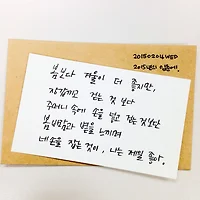 20150204WED
2015년의 입춘에.
봄보다 겨울이 더 좋지만,
장갑끼고 걷는 것 보다
주머니 속에 손을 넣고 걷는 것보단
봄바람과 볕을 느끼며
네 손을 잡는 것이, 나는 제일 좋아.